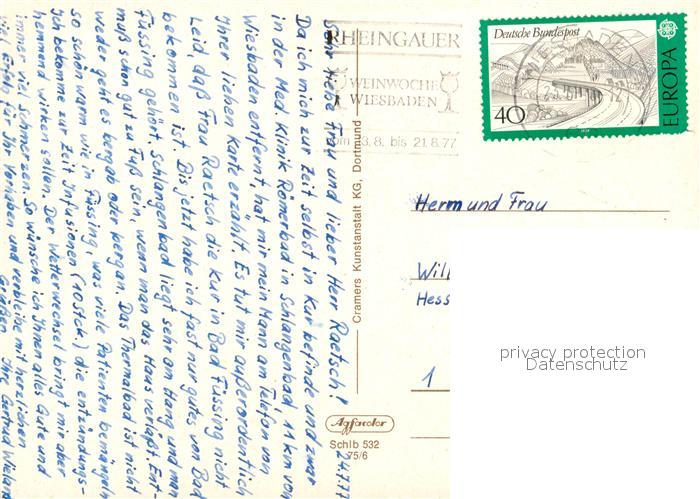 24.7.77
Sehr liebe Frau und lieber Herr Raetsch!
Da ich mich zur Zeit selbst in Kur befinde und zwar
in der Med. Klinik Römerbad in Schlangenbad, 11 km von
Wiesbaden entfernt, hat mir mein Mann am Telefon von
Ihrer lieben Karte erzählt. Es tut mir außerordentlich
Leid, daß Frau Raetsch die Kur in Bad Füssing nicht
bekommen ist. Bis jetzt habe ich fast nur gutes von Bad
Füssing gehört. Schlangenbad liegt sehr am Hang und man
muß schon gut zu Fuß sein, wenn man das Haus verläßt. Ent-
weder geht es bergab oder bergan. Das Thermalbad ist nicht
so schön warm wie in Füssing, was viele Patienten bemängeln
Ich bekomme zur Zeit Infusionen (10 Stck.) die entzündungs-
hemmend wirken sollen. Der Wetterwechsel bringt mir aber
immer viel Schmerzen. So wünsche ich Ihnen alles Gute und
viel Erfolg für Ihr Vorhaben und verbleibe mit herzlichen
Grüßen Ihre Gertrud Wieland
Cramers Kunstanstalt KG, Dortmund
RHEINGAUER
WEINWOCHE
WIESBADEN
vom 13.8. bis 21.8.77
Deutsche Bundespost
40
EUROPA
Herrn und Frau
Will
Hess
1
privacy protection
Datenschutz
Agfacolor
Schlb 532
75/6